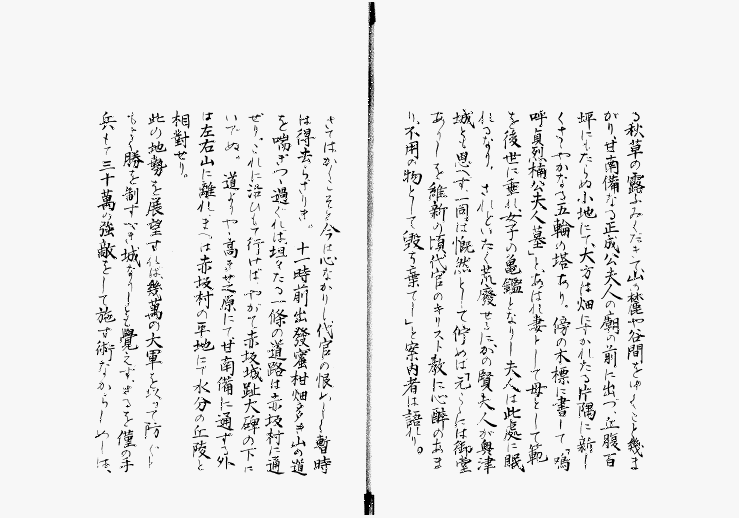 る秋草の露ふみくだきて山の麓や谷間をゆくこと幾ま
がり、甘南備なる正成公夫人の廟の前に出づ、丘腹百
坪にもたらぬ小地にて、大方は畑にすかれたる片隅に新し
くさゝやかなる五輪の塔あり、傍の木標に書して「嗚
呼貞烈楠公夫人墓」とあはれ妻として母として範
を後世に垂れ、女子の亀鑑となりし夫人は此處に眠
れるなり、されどいたく荒廢せるにかの賢夫人が奥津
城とも思へず、一同は慨然として佇めは「元こゝには御堂
ありしを維新の頃代官のキリスト教に心醉のあま
り、不用の物として毀ち棄てし」と案内者は語れり。
さてはかくこそと今は心なかりし代官の恨めしく暫時
は得去らざりき。十一時前出發蜜柑畑多き山の道
を喘ぎつゝ過ぐれは坦々たる一條の道路は赤坂村に通
ぜり、これに沿ひもて行けば、やがて赤坂城趾大碑の下に
いでぬ。道よりやゝ高きせ之原にて甘南備に通ずる外
は左右山に離れ、まへは赤坂村の平地にて水分の丘陵と
相對せり。
此の地勢を展望すれは幾萬の大軍を以って防ぐと
もよく勝を制すべき城なりしとも覺えず、さるを僅の手
兵もて三十萬の強敵をして施す術なからしめしは、